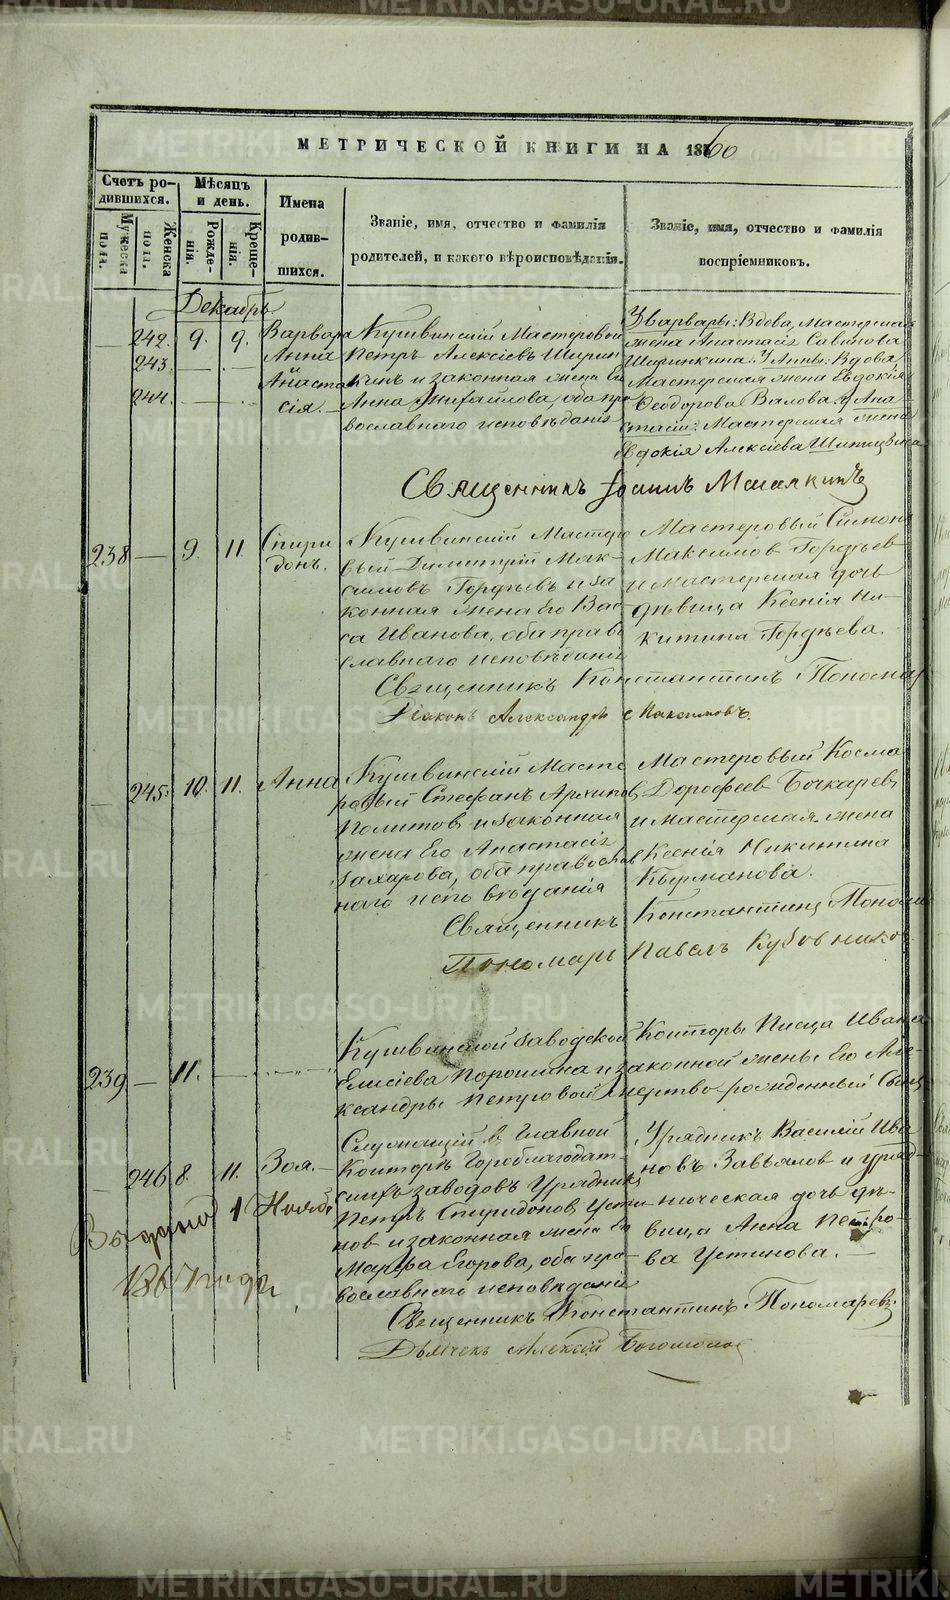 МЕТРИЧЕСКОЙ КНИГИ НА 1860
Счетъ ро-
дившихся.
Мужеска
пола.
Женска
пола.
Мѣсяцъ
и день.
Рожде-
нія.
Креще-
нія.
Имена
родив-
шихся.
Званіе, имя, отчество и фамилія
родителей, и какого вѣроисповѣданія.
Званіе, имя, отчество и фамилія
воспріемниковъ.
Декабрь
242. 9. 9. Варвара
243. Анна
244. Анаста
сія.
Кушвинскій Мастеровой
Петръ Алексіевъ Ширин
кинъ и законная жена Его
Анна Михайлова, оба пра
вославнаго исповѣданія
У Варвары: Вдова, Мастерская
жена Анастасія Савинова
Ширинкина. У Анны: Вдова
Мастерская жена Евдокія
Ѳеодорова Валова. У Ана
стасіи: Мастерская жена
Евдокія Алексіева Шипицына
Священникъ Іоаннъ
238 — 9. 11. Спири
донъ.
Кушвинскій Мастеро
вый Димитрій Мак-
симовъ Гордѣевъ и за
конная жена Его Вас
са Иванова, оба право
славнаго исповѣданія
Мастеровый Симонъ
Максимов Гордѣев
и мастерская дочь
дѣвица Ксенія Ни-
китина Гордѣева.
Священникъ Константинъ Пономар
Діаконъ Александръ
245. 10. 11. Анна
Кушвинскій Масте
ровый Стефанъ Архипов
Политов и законная
жена Его Анастасія
Захарова, оба православ
наго исповѣданія
Мастеровый Косма
Дорофеев Бочкарев
и мастерская жена
Ксенія Никитина
Кырманова.
Священникъ Константинъ Поном
Пономарь Павелъ
239 — 11. —
Кушвинской заводской Конторы Писца Ивана
Елисіева Порошина и законной жены Его Але-
ксандры Петровой мертво-рожденный Сынъ
246 8. 11. Зоя. —
Служащій в Главной
Конторѣ Гороблагодат-
скихъ заводовъ Урядник
Петръ Спиридонов Усти
нов и законная жена Его
Марѳа Егорова, оба пра-
вославнаго исповѣданія
Урядникъ Василій Ива
новъ Завьялов и уряд-
ническая дочь дѣ-
вица Анна Петро-
ва Устинова. —
1 Нояб
1867 года
Священникъ Константинъ Пономаревъ
Дьячекъ Алексій